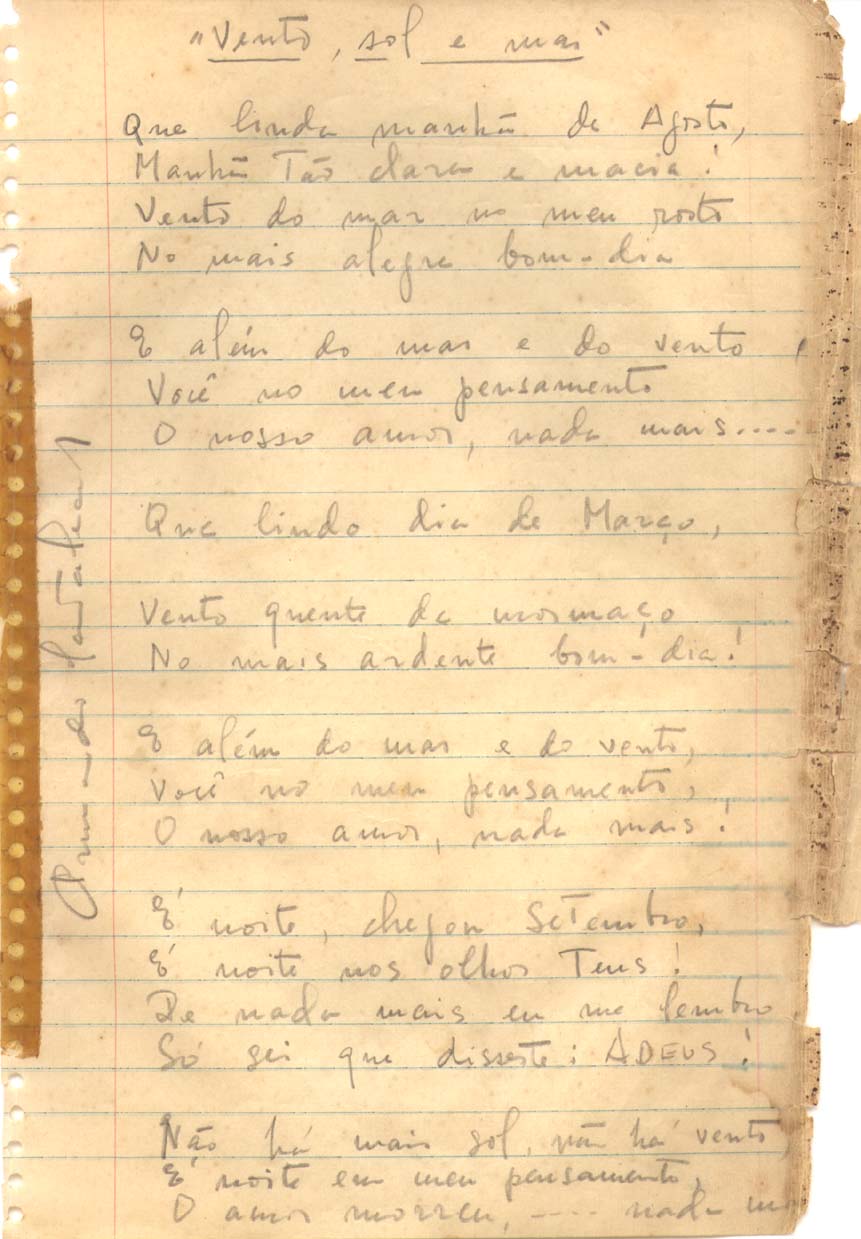 "Vento, sol e mar"
Que linda manhã de Agosto,
Manhã Tão clara e macia!
Vento do mar no meu rosto
No mais alegre bom-dia
E além do mar e do vento,
Você no meu pensamento
O nosso amor, nada mais....
Que lindo dia de Março,
Vento quente de mormaço
No mais ardente bom-dia!
E além do mar e do vento,
Você no meu pensamento,
O nosso amor, nada mais!
É noite, chegou Setembro,
É noite nos olhos Teus!
De nada mais eu me lembro
Só sei que disseste: ADEUS!
Não há mais sol, não há vento
É noite em meu pensamento,
O amor morreu, .... nada